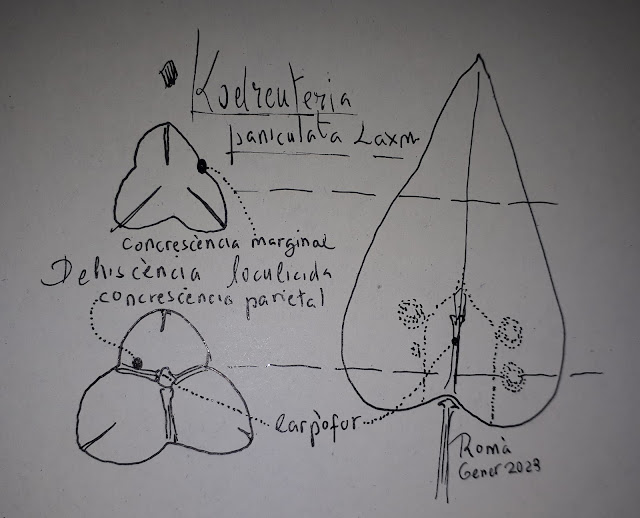 Koelreuteria
paniculata Laxm
concrescència marginal
Dehiscència loculicida
concrescència parietal
carpòfor
Romà
Gener 2023